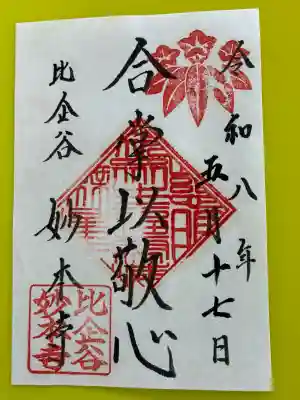 令和八年
五月十七日
合掌以敬心
比企谷
妙本寺
比企谷
妙本寺